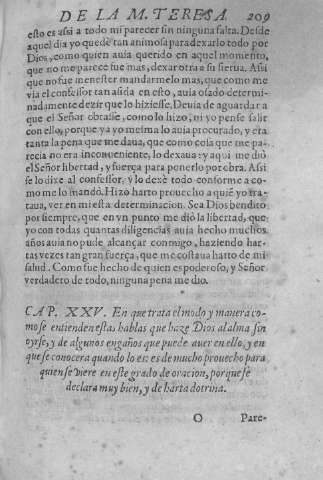 DE LA M. TERESA. 209
esto es assi a todo mi parecer sin ninguna falta. Desde
aquel dia yo quedè tan animosa para dexarlo todo por
Dios, como quien auia querido en aquel momento,
que no me parece fue mas, dexar otra a su sierua. Assi
que no fue menester mandarmelo mas, que como me
via el confessor tan asida en esto, auia osado determi-
nadamente dezir que lo hiziesse. Deuia de aguardar a
que el Señor obrasse, como lo hizo, ni yo pense salir
con ello, porque ya yo mesma lo auia procurado, y era
tanta la pena que me daua, que como cosa que me pa-
recia no era inconueniente, lo dexaua: y aqui me diò
el Señor libertad, y fuerça para ponerlo por obra. Assi
se lo dixe al confessor, y lo dexè todo conforme a co-
mo me lo mandò. Hizo harto prouecho a quiē yo tra-
taua, ver en mi esta determinacion. Sea Dios bendito
por siempre, que en vn punto me diò la libertad, que
yo con todas quantas diligencias auia hecho muchos
años auia no pude alcançar conmigo, haziendo har-
tas vezes tan gran fuerça, que me costaua harto de mi
salud. Como fue hecho de quien es poderoso, y Señor
verdadero de todo, ninguna pena me dio.
CAP. XXV. En que trata el modo y manera co-
mo se entienden estas hablas que haze Dios al alma sin
oyrse, y de algunos engaños que puede auer en ello, y en
que se conocera quando lo es: es de mucho prouecho para
quien se viere en este grado de oracion, porque se
declara muy bien, y de harta dotrina.
O Pare-